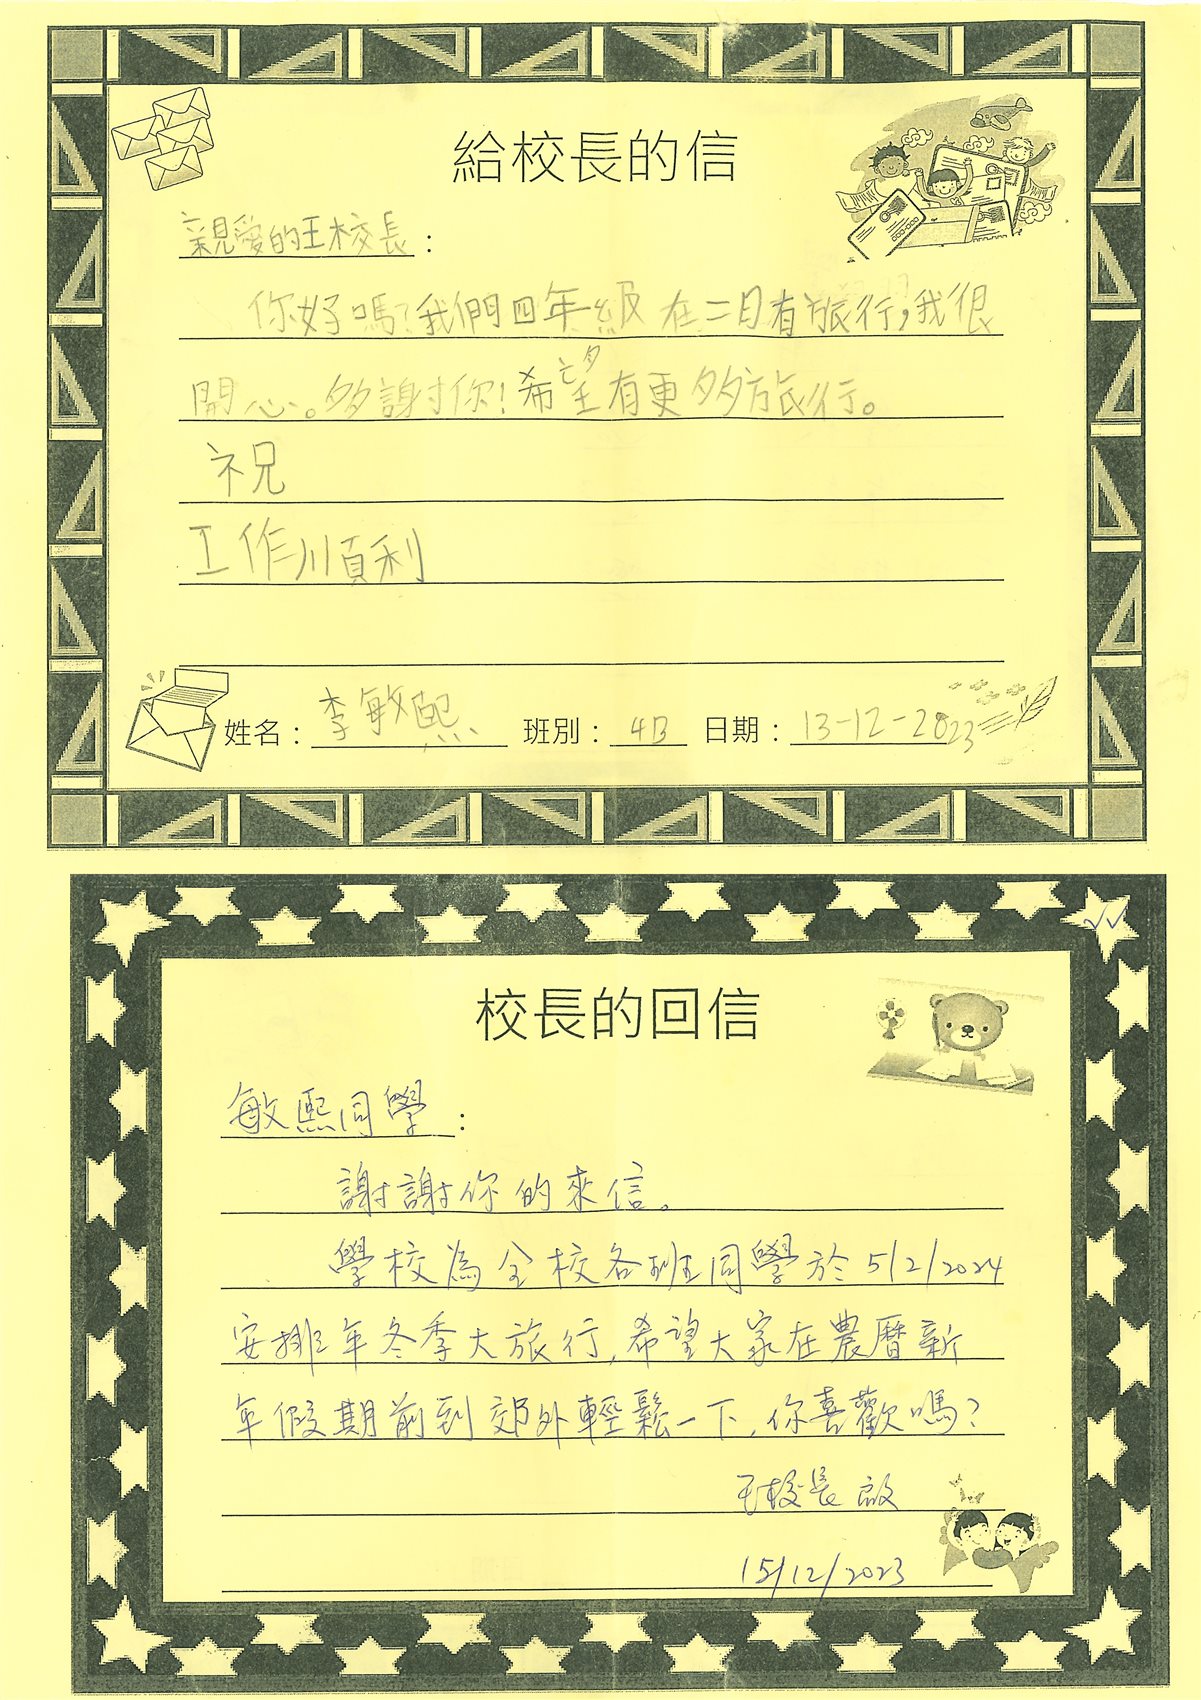 給校長的信
親愛的王校長：
你好嗎?我們四年級在二月有旅行,我很
開心。多謝你!希望有更多旅行。
祝
工作順利
姓名：李敏熙 班別：4B 日期：13-12-2023
校長的回信
敏熙同學：
謝謝你的來信。
學校為全校各班同學於5/2/2024
安排年冬季大旅行,希望大家在農曆新
年假期前到郊外輕鬆一下,你喜歡嗎?
王校長啟
15/12/2023